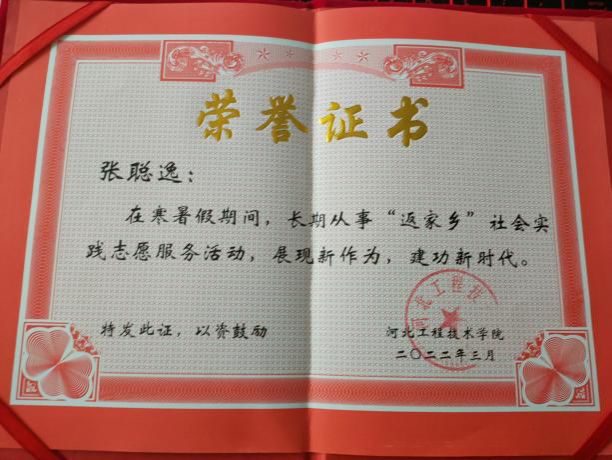 荣誉证书
张聪逸：
在寒暑假期间，长期从事“返家乡”社会实
践志愿服务活动，展现新作为，建功新时代。
特发此证，以资鼓励
河北工程技术学院
二〇二二年三月
河北工程技